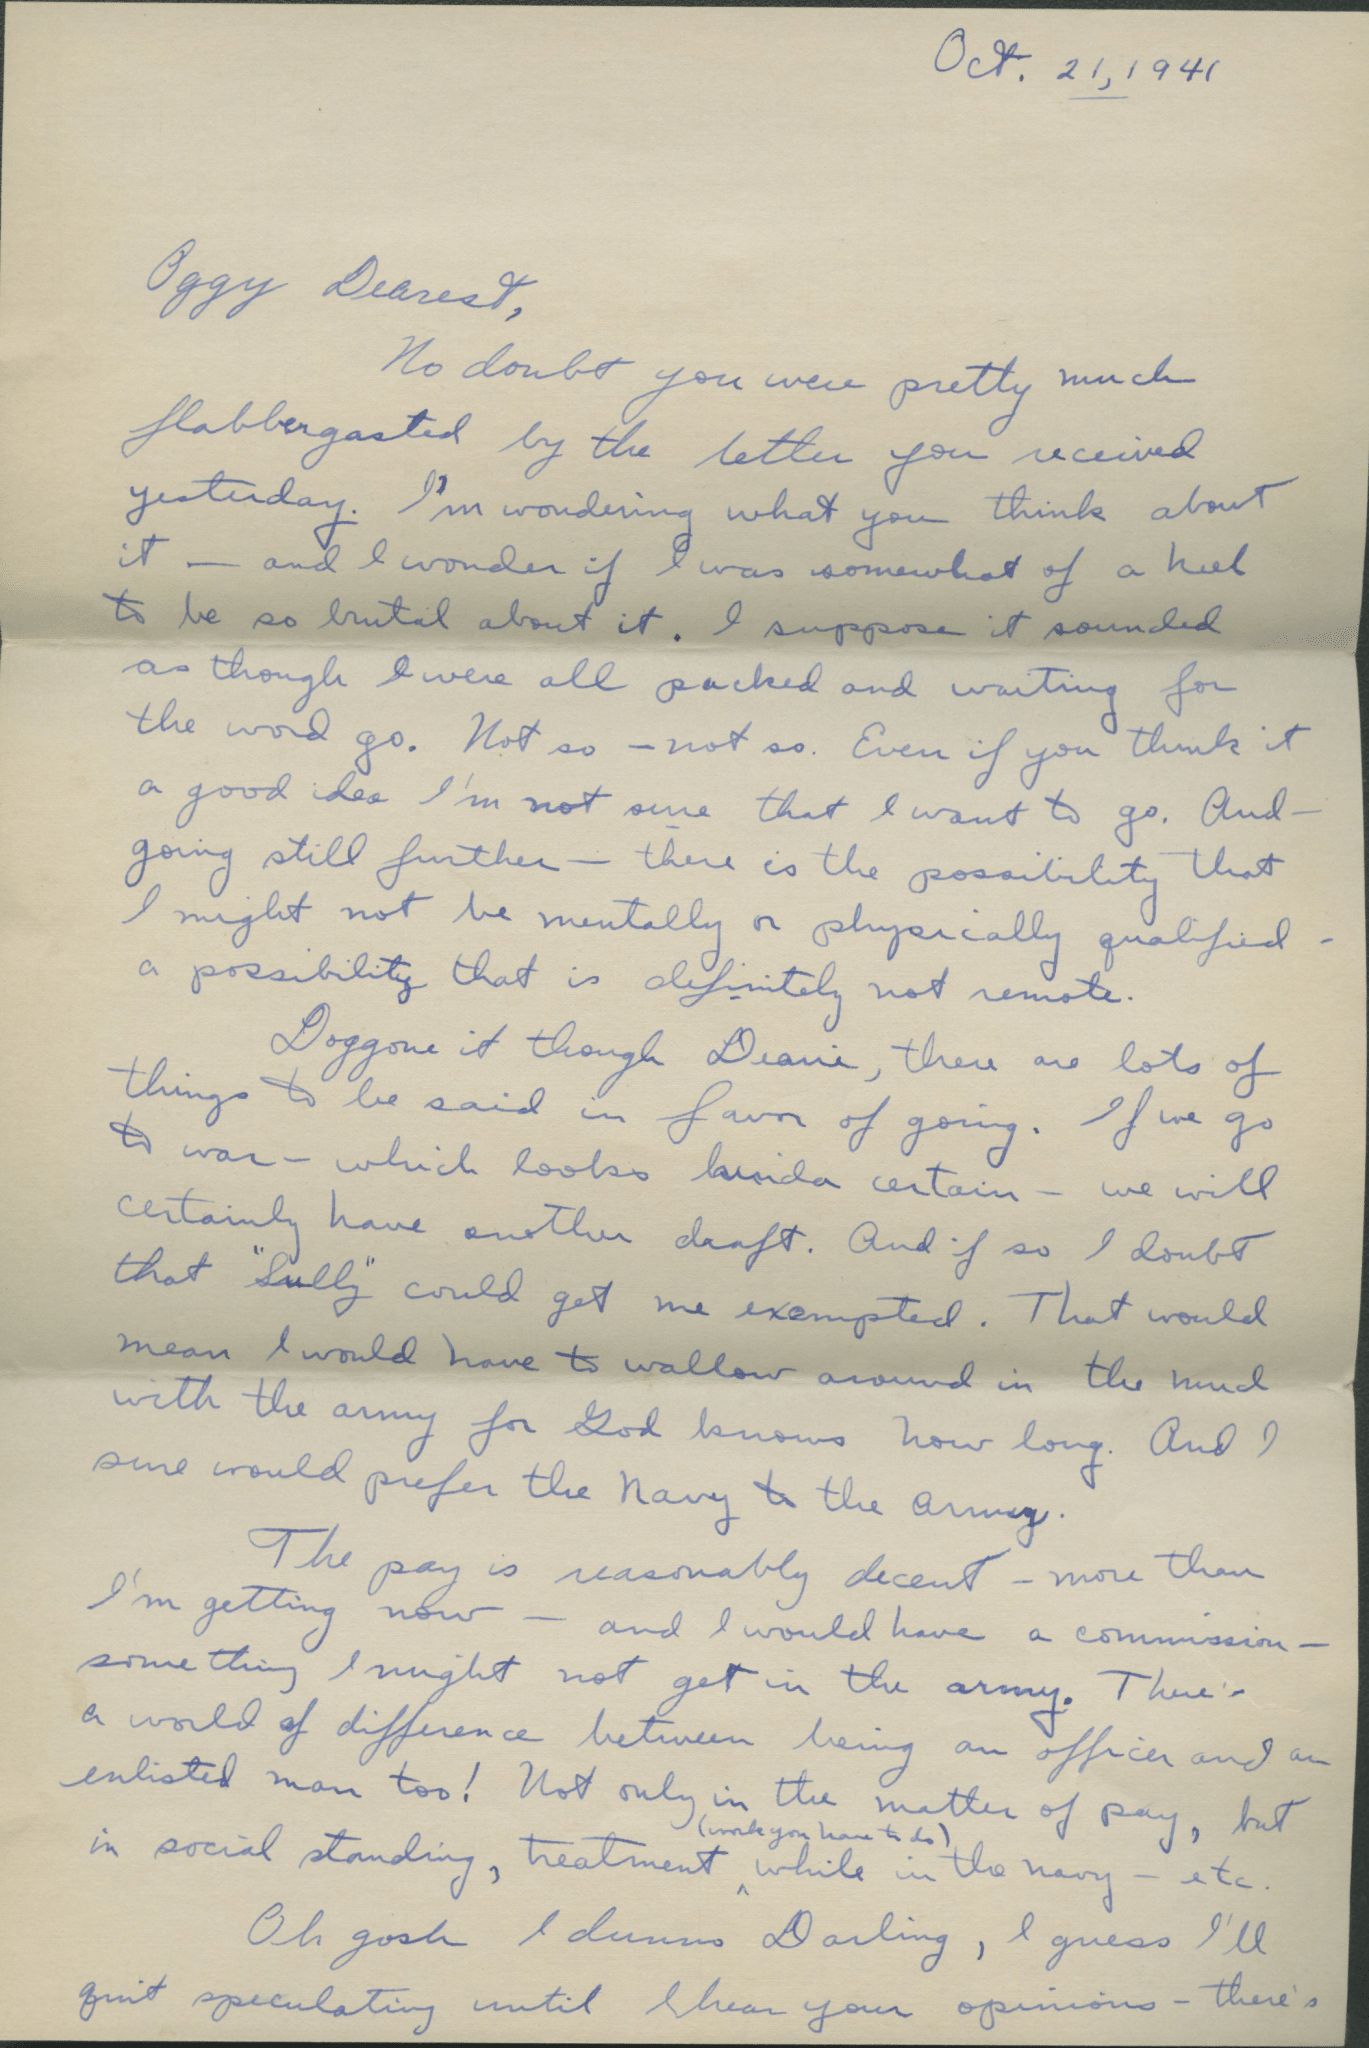 Oct. 21, 1941
Oggy Dearest,
No doubt you were pretty much
flabbergasted by the letter you received
yesterday. I'm wondering what you think about
it — and I wonder if I was somewhat of a heel
to be so brutal about it. I suppose it sounded
as though I were all packed and waiting for
the word go. Not so — not so. Even if you think it
a good idea I'm not sure that I want to go. And —
going still further — there is the possibility that
I might not be mentally or physically qualified -
a possibility that is definitely not remote.
Doggone it though Dearie, there are lots of
things to be said in favor of going. If we go
to war — which looks kinda certain — we will
certainly have another draft. And if so I doubt
that "Sully" could get me exempted. That would
mean I would have to wallow around in the mud
with the army for God knows how long. And I
sure would prefer the Navy to the army.
The pay is reasonably decent — more than
I'm getting now — and I would have a commission —
something I might not get in the army. There's
a world of difference between being an officer and an
enlisted man too! Not only in the matter of pay, but
(work you have to do)
in social standing, treatment ^ while in the navy — etc.
Oh gosh I dunno Darling, I guess I'll
quit speculating until I hear your opinions — there's